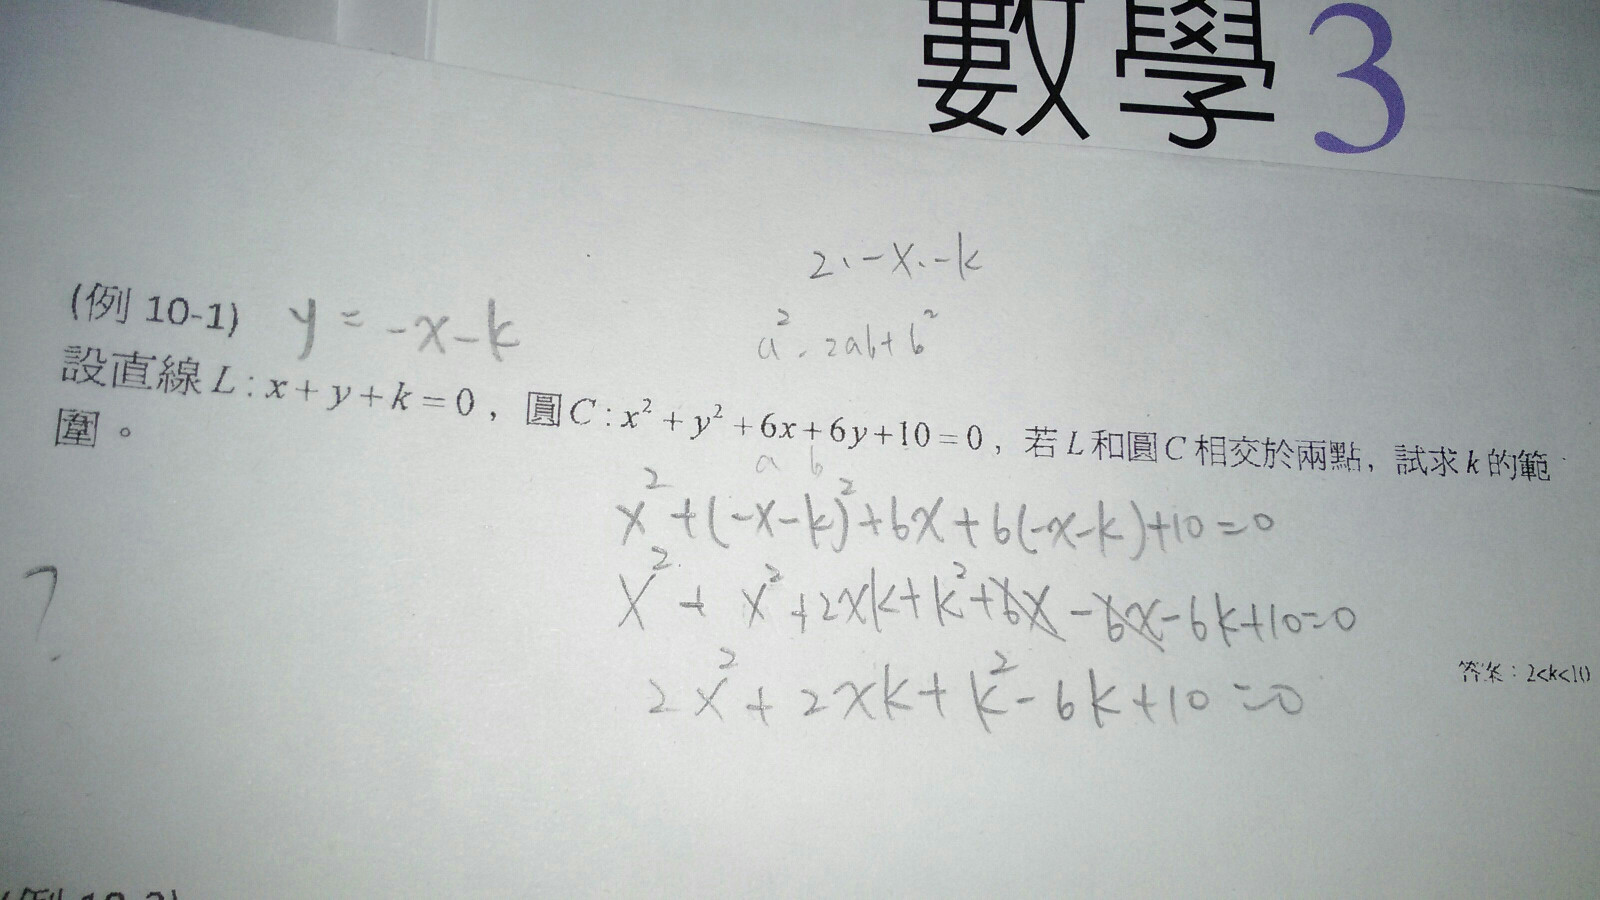 數學3
2·-x·-k
(例 10-1) y = -x-k
a². 2ab+b²
設直線L:x+y+k=0，圓C:x²+y²+6x+6y+10=0，若L和圓C相交於兩點，試求k的範
圍。
a b
x²+(-x-k)²+6x+6(-x-k)+10=0
x²+x²+2xk+k²+6x-6x-6k+10=0
?
2x²+2xk+k²-6k+10=0
答案：2<k<10